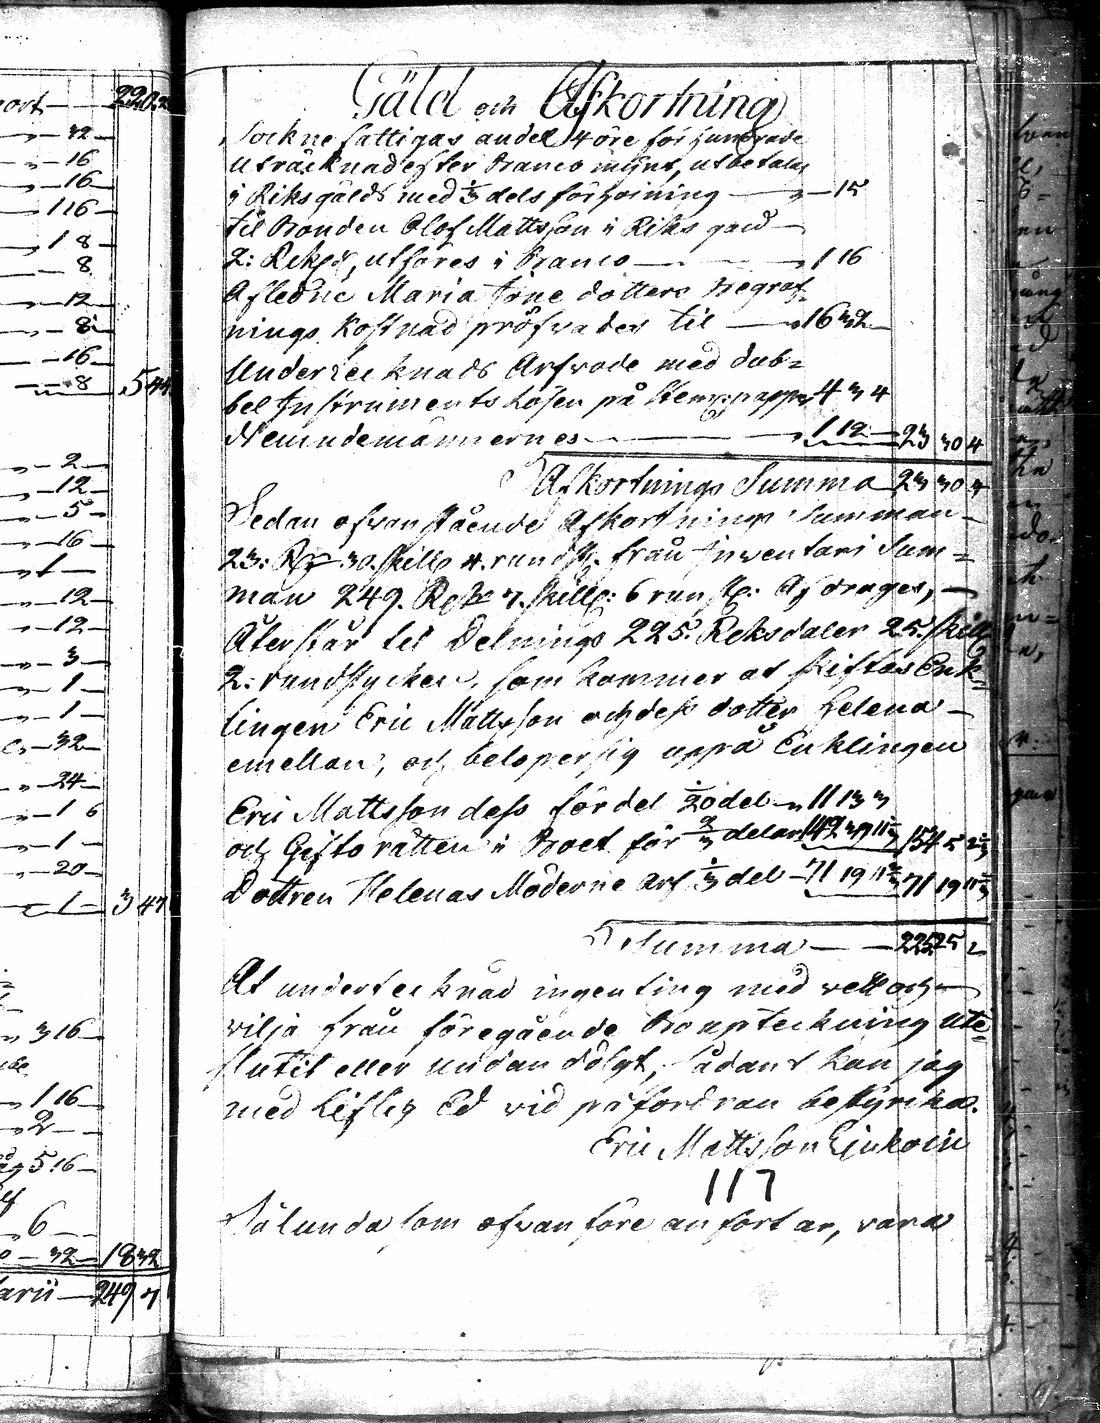 Gäld och Afkortning
Sockne fattigas andel 4 öre för hundrade
uträcknad efter Banco mynt, utbetalas
i Riksgälds med 1/3 dels förhöining — " — 15
til Bonden Olof Mattsson i Riks gäld —
2: Reksd, utföres i Banco — — " 1 16
Afledne Maria dotters Begraf=
nings Kostnad pröfvades til — " 16 32 —
Undertecknads Arfvode med dub=
bel Instruments Lösen på Stemp: papper 4 3 4
Nemndemännernes — — " 1 12 — 23 30 4
Afkortnings Summa 23 30 4
Sedan ofvanstående Afkortnings Summan —
23: Rdr 30 skill. 4. rundst. från Inventarii Sum=
man 249. Rdr 7. skill: 6 runst: Afdrages, —
Återstår till Delnings 225. Reksdaler 25. skill
2: rundstycken, som kommer at skiftas Enk=
lingen Eric Mattsson och dess dotter Helena —
emellan, och beloper sig uppå Enklingen
Eric Mattsson dess fördel 1/20 del — " 11 13 3
och Gifto rätten i Boet för 2/3 delar 142 39 11 1/3 154 5 2 1/3
Dottren Helenas Möderne arf 1/3 del — 71 19 11 2/3 71 19 11 2/3
Summa — — 225 25 2
At undertecknad ingenting med vett och —
vilja från föregående Bouptekning ute=
slutit eller undandölgt, sådant kan jag
med Liflig Ed vid påfordran bestyrka.
Eric Mattsson
117
Sålunda som ofvanföre anfört är, vara
ort — 220
" — 32 —
" — 16
" — 16 —
— 116 —
" 1 8 —
— 8
" — 12 —
" — 8 —
— 16 —
" — 8 — 5 44
" — 2 —
" — 12 —
" — 5 —
" — 16
" 1 —
" — 12 —
" — 12 —
" — 3 —
" — 1 —
" — 1 —
— 32 —
" — 24 —
" — 1 6
" — 1 —
" — 20 —
— 1 — 3 47
" 3 16 —
" 1 16 —
" — 2 —
5 16 —
" 6 —
— 32 — 18 32
arii — 249 7